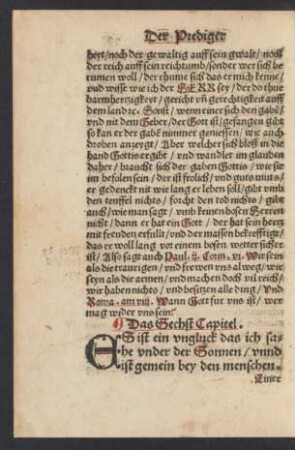 Der Prediger
heyt/noch der gewaltig auff sein gwalt/noch
der reich auff sein reichtumb/sonder wer sich be
rumen woll/der rhume sich das er mich kenne/
vnd wisse wie ich der HERR sey/der do thue
barmhertzigkeyt/gericht vñ gerechtigkeit auff
dem land ꝛc. Sunst/wenn einer sich den gabē/
vnd nit dem Geber/der Gott ist/gefangen gibt
so kan er der gabē nimmer geniessen/wie auch
droben anzeygt/Aber welcher sich bloß in die
hand Gottis ergibt/vnd wandler im glauben
daher/braucht sich der gaben Gottis/wie sie
im befolen sein/der ist frolich/vnd guts muts/
er gedenckt nit wie lang er leben soll/gibt vmb
den teuffel nichts/forcht den tod nichts/gibt
auch/wie man sagt/vmb keinen bösen Herren
nicht/dann er hat ein Gott/der hat sein hertz
mit freuden erfullt/vnd der massen bekrefftigt/
das er woll lang vor einem bosen wetter sicher
ist/Also sagt auch Paul. ij. Corin. vi. Wir sein
als die traurigen/vnd frewen vns alweg/wir
seyn als die armen/vnd machen doch vil reich/
wir haben nichts/vnd besitzen alle ding/Vnd
Roma. am viij. Wann Gott fur vns ist/wer
mag wider vns sein?
Das Sechst Capitel.
ES ist ein vngluck das ich sa-
he vnder der Sonnen/vnnd
ist gemein bey den menschen.
Einer